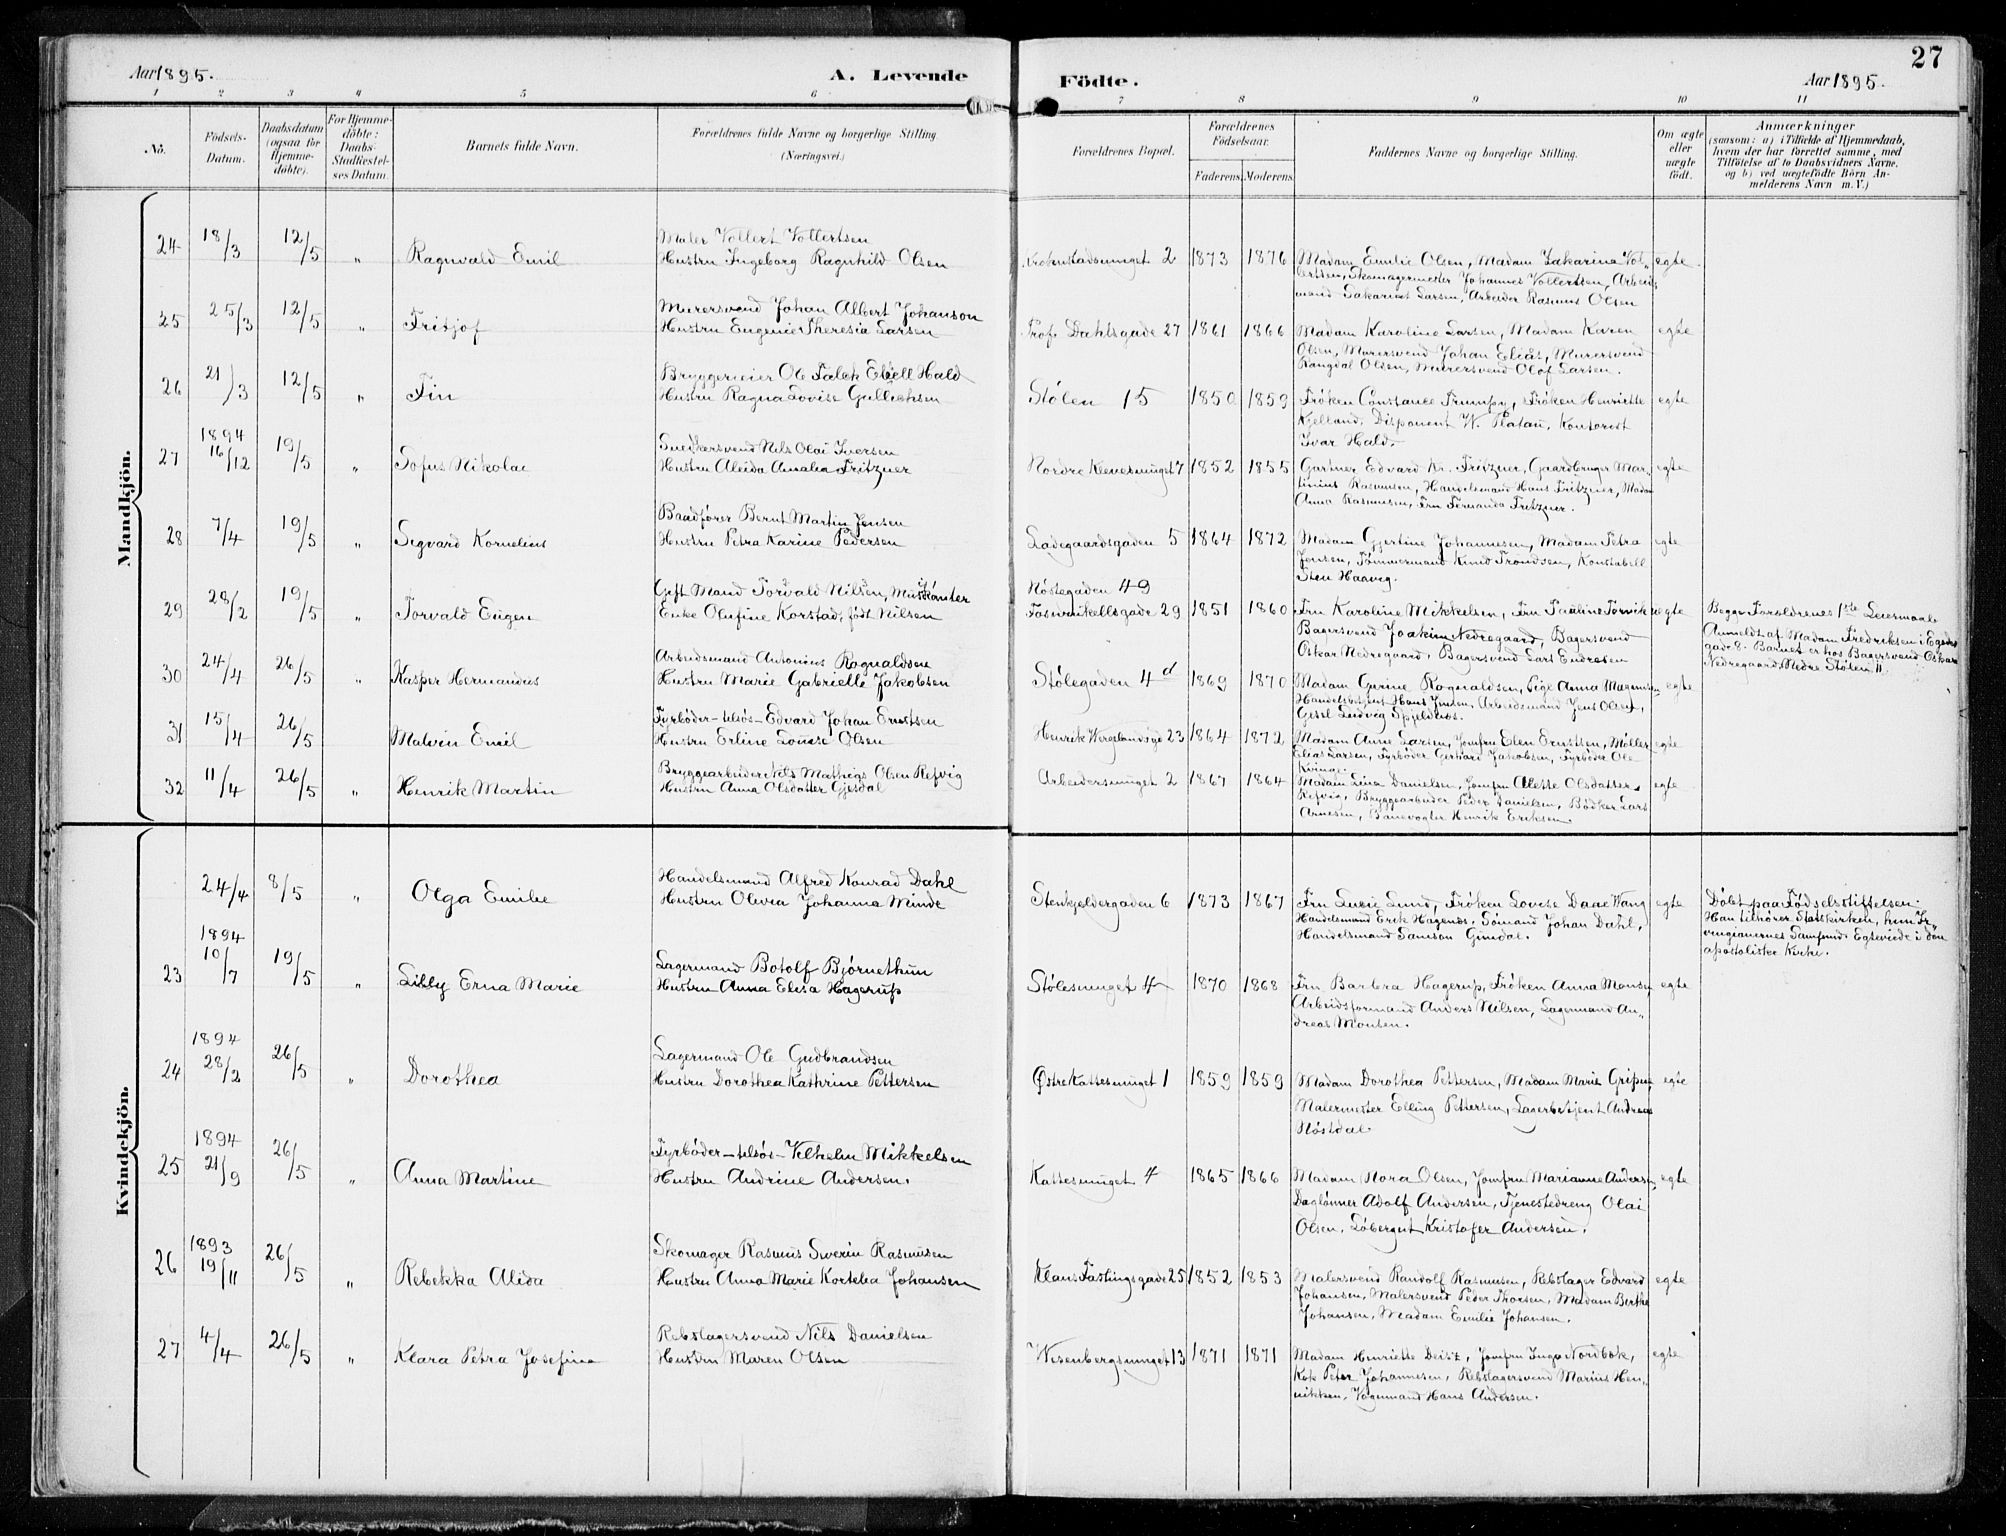 27
Aar 1895.
A. Levende
Födte.
Aar 1895.
1 2 3 4 5 6 7 8 9 10 11
No.
Födsels-
Datum.
Daabsdatum
(ogsaa for
Hjemme-
döbte).
For Hjemme-
döbte:
Daabs-
Stadfæstel-
ses Datum.
Barnets fulde Navn.
Forældrenes fulde Navne og borgerlige Stilling.
(Næringsvei.)
Forældrenes Bopæl.
Forældrenes
Födselsaar.
Faderens. Moderens.
Faddernes Navne og borgerlige Stilling.
Om ægte
eller
uægte
födt.
Anmærkninger
(saasom: a) i Tilfælde af Hjemmedaab,
hvem der har forrettet samme, med
Tilföielse af to Daabsvidners Navne,
og b) ved uægtefödte Börn An-
melderens Navn m. V.)
Mandkjön.
24 18/3 12/5 " Ragnvald Emil
Maler Vollert Vollertsen
Hustru Ingeborg Ragnhild Olsen
Krohnstadsmuget 2 1873 1876
Madam Emilie Olsen, Madam Zakarine Vol-
lertsen, Skomagermester Johannes Vollertsen, Arbeids-
mand Sakarias Larsen, Arbeider Rasmus Olsen
egte
25 25/3 12/5 " Fritjof
Murersvend Johan Albert Johanson
Hustru Eugenie Theresia Larsen
Prof. Dahlsgade 27 1861 1866
Madam Karoline Larsen, Madam Karen
Olsen, Murersvend Johan Elias, Murersvend
Rangdal Olsen, Murersvend Olof Larsen.
egte
26 21/3 12/5 " Fin
Bryggerieier Ole Falck Ebell Hald
Hustru Ragna Lovise Gullichsen
Stølen 15 1850 1859
Frøken Constance Trumpy, Frøken Henriette
Kjelland, Disponent W. Platau, Kontorist
Ivar Hald.
egte
27 1894 16/12 19/5 " Sofus Nikolai
Snedkersvend Nils Olai Iversen
Hustru Aleida Amalia Fritzner
Nordre Klevesmuget 7 1852 1855
Gartner Edvard Kr. Fritzner, Gaardbruger Mar-
tinius Rasmusen, Handelsmand Hans Fritzner, Madam
Anna Rasmusen, Fru Fernanda Fritzner.
egte
28 7/4 19/5 " Sigvard Kornelius
Baadfører Bernt Martin Jensen
Hustru Petra Karine Pedersen
Ladegaardsgaden 5 1864 1872
Madam Gjertine Johannesen, Madam Petra
Jensen, Tømmermand Knud Trondsen, Konstabell
Sten Haavig.
egte
29 28/2 19/5 " Torvald Eugen
Gift Mand Torvald Nilsen, Musikanter
Enke Olufine Korstad, født Nilsen
Nöstegaden 49
Fosswinkellsgade 29 1851 1860
Fru Karoline Mikkelsen, Fru Pauline Torvik
Bagersvend Joakim Nedregaard, Bagersvend
Oskar Nedregaard, Bagersvend Lars Endresen
uegte
Begge Forældrenes 1ste Leiermaal
Anmeldt af Madam Fredriksen i Egedes
gade 8. Barnet er hos Bagersvend Oskar
Nedregaard, Nedre Stölen 11.
30 24/4 26/5 " Kasper Hermandus
Arbeidsmand Antonius Ragnaldsen
Hustru Marie Gabrielle Jakobsen
Stølegaden 4d 1869 1870
Madam Gurine Ragnaldsen, Pige Anna Magnusen
Handelsbetjent Hans Jensen, Arbeidsmand Jens Olsen,
Gesel Ludvig Spjeldnæs.
egte
31 15/4 26/5 " Malvin Emil
Fyrbøder -tilsøs- Edvard Johan Erntsen
Hustru Erline Louise Olsen
Henrik Wergelandsgd 23 1864 1872
Madam Anne Larsen, Jomfru Elen Erntsen, Møller
Elias Larsen, Fyrbøder Gerhard Jakobsen, Fyrbøder Ole
Kvinge.
egte
32 11/4 26/5 " Henrik Martin
Bryggearbeider Nils Mathias Olsen Refvig
Hustru Anna Olsdatter Gjesdal
Arbeidersmuget 2 1867 1864
Madam Lina Danielsen, Jomfru Alette Olsdatter
Refvig, Bryggearbeider Peder Danielsen, Bødker Lars
Arnesen, Banevogter Henrik Eriksen.
egte
Kvindekjön.
24/4 8/5 " Olga Emilie
Handelsmand Alfred Konrad Dahl
Hustru Olivia Johanna Minde
Stenkjeldergaden 6 1873 1867
Fru Lucie Lund, Frøken Lovise Daae Wang
Handelsmand Erik Hagenæs, Sømand Johan Dahl,
Handelsmand Samson Gimdal.
egte
Döbt paa Födselsstiftelsen.
Han tilhører Statskirken, hun Ir-
vingianernes Samfund. Egteviede i den
apostoliske Kirke.
23 1894 10/7 19/5 " Lilly Erna Marie
Lagermand Botolf Bjørnethun
Hustru Anna Elisa Hagerup
Stølesmuget 4 1870 1868
Fru Barbra Hagerup, Frøken Anna Monsen,
Arbeidsformand Anders Nilsen, Lagermand An-
dreas Monsen.
egte
24 1894 28/2 26/5 " Dorothea
Lagermand Ole Gudbrandsen
Hustru Dorothea Kathrine Pettersen
Østre Kattesmuget 1 1859 1859
Madam Dorothea Pettersen, Madam Marie Gripen,
Malermester Elling Pettersen, Lagerbetjent Andreas
Nöstdal.
egte
25 1894 21/9 26/5 " Anna Martine
Fyrbøder -tilsøs- Vilhelm Mikkelsen
Hustru Andrine Andersen.
Kattesmuget 4 1865 1866
Madam Nora Olsen, Jomfru Marianne Andersen,
Daglønner Adolf Andersen, Tjenestedreng Olai
Olsen, Løbergut Kristofer Andersen.
egte
26 1893 19/11 26/5 " Rebekka Alida
Skomager Rasmus Sverin Rasmusen
Hustru Anna Marie Kortelia Johansen
Klaus Fastingsgade 25 1852 1853
Malersvend Randolf Rasmusen, Rebslager Edvard
Johansen, Malersvend Peder Thorsen, Madam Berthe
Johansen, Madam Emilie Johansen.
egte
27 4/4 26/5 " Klara Petra Josefine
Rebslagersvend Nils Danielsen
Hustru Maren Olsen
Wesenbergsmuget 13 1871 1871
Madam Henriette Deitz, Jomfru Inga Nordbök,
Kok Peter Johannesen, Rebslagersvend Marius Hen-
rikken, Vognmand Hans Andersen.
egte